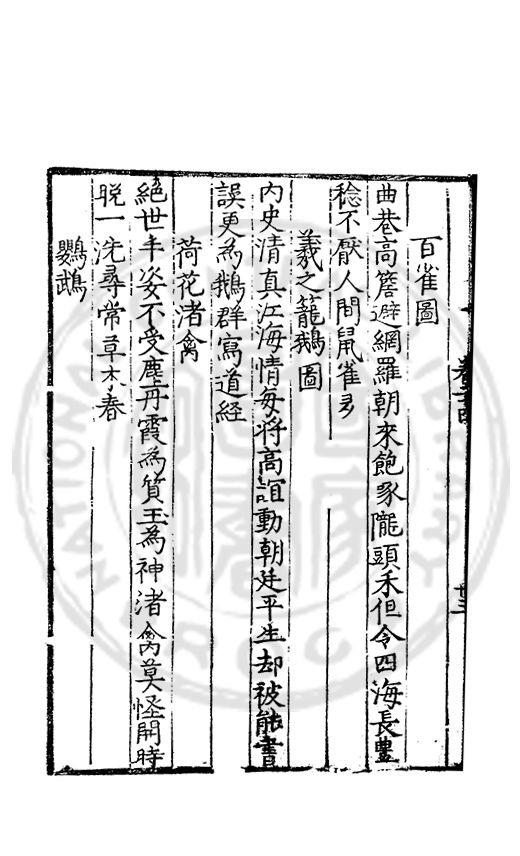 百雀圖
曲巷高簷避網羅朝來飽啄隴頭禾但令四海長豐
稔不厭人間鼠雀多
羲之籠鵝圖
內史清真江海情每將高誼動朝廷平生却被能書
誤更為鵝群寫道經
荷花渚禽
絕世丰姿不受塵丹霞為質玉為神渚禽莫怪開時
晚一洗尋常草木春
鸚鵡